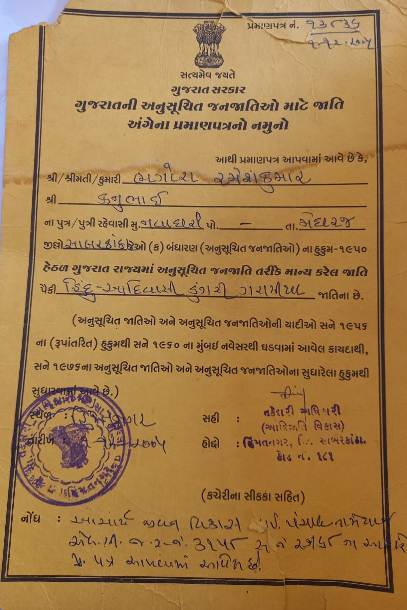 પ્રમાણપત્ર નં. ૧૩૮૩૬
સત્યમેવ જયતે
ગુજરાત સરકાર
ગુજરાતની અનુસૂચિત જનજાતિઓ માટે જાતિ
અંગેના પ્રમાણપત્રનો નમુનો
આથી પ્રમાણપત્ર આપવામાં આવે છે કે,
શ્રી/શ્રીમતી/કુમારી ભગોરા રમેશકુમાર
શ્રી કનુભાઈ
ના પુત્ર/પુત્રી રહેવાસી મુ. પો. – તા. મેઘરજ
જીલ્લો સાબરકાંઠા (ક) બંધારણ (અનુસૂચિત જનજાતિઓ) ના હુકમ-૧૯૫૦
હેઠળ ગુજરાત રાજ્યમાં અનુસૂચિત જનજાતિ તરીકે માન્ય કરેલ જાતિ
પૈકી હિન્દુ-આદિવાસી ડુંગરી ગરાસીયા જાતિના છે.
(અનુસૂચિત જાતિઓ અને અનુસૂચિત જનજાતિઓની યાદીઓ સને ૧૯૫૬
ના (રૂપાંતરિત) હુકમથી સને ૧૯૬૦ ના મુંબઇ નવેસરથી ઘડવામાં આવેલ કાયદાથી,
સને ૧૯૭૬ના અનુસૂચિત જાતિઓ અને અનુસૂચિત જનજાતિઓના સુધારેલા હુકમથી
સુધારવામાં આવે છે.)
સ્થળ : હિંમતનગર
સહી : તકેદારી અધિકારી
(આદિજાતિ વિકાસ)
તારીખ
હોદ્દો : હિંમતનગર, જિ. સાબરકાંઠા
કોડ નં. ૧૬૧
(કચેરીના સીક્કા સહિત)
નોંધ :
પ્ર. પત્ર આપવામાં આવેલ છે.